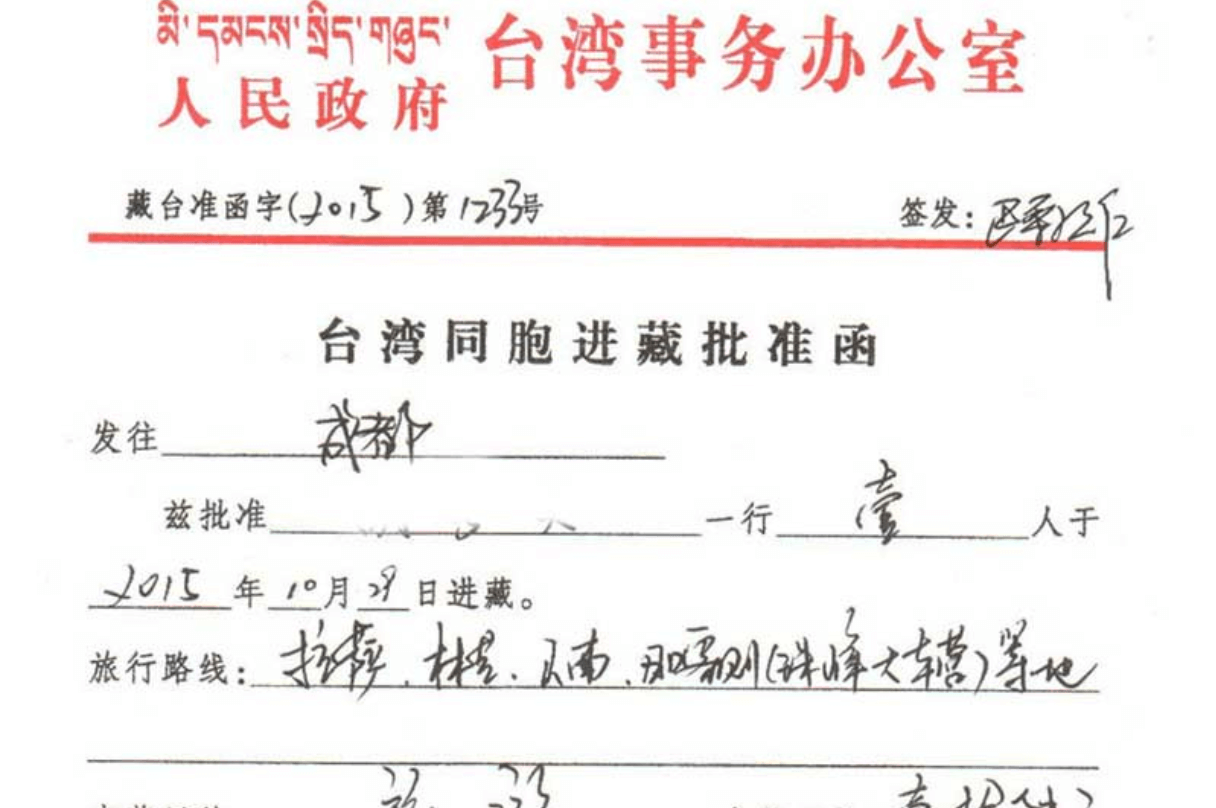 མི་དམངས་སྲིད་གཞུང་
人民政府 台湾事务办公室
藏台准函字(2015)第1233号
签发:
台湾同胞进藏批准函
发往 成都
兹批准 一行 壹 人于
2015 年 10 月 29 日进藏。
旅行路线: 拉萨、林芝、山南、日喀则(珠峰大本营)等地